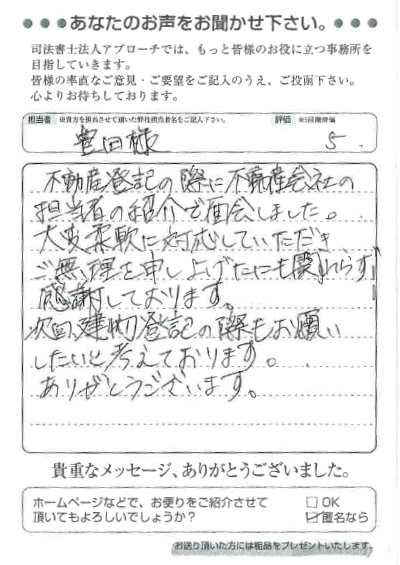 あなたのお声をお聞かせ下さい。
司法書士法人アプローチでは、もっと皆様のお役に立つ事務所を
目指していきます。
皆様の率直なご意見・ご要望をご記入のうえ、ご投函下さい。
心よりお待ちしております。
担当者 ※貴方を担当させて頂いた弊社担当者名をご記入下さい。 評価 ※5段階評価
豊田様 5
不動産登記の際に不動産会社の
担当者の紹介で面会しました。
大変柔軟に対応していただき
ご無理を申し上げたにも関わらず
感謝しております。
次回、建物登記の際もお願い
したいと考えております。
ありがとうございます。
貴重なメッセージ、ありがとうございました。
ホームページなどで、お便りをご紹介させて □OK
頂いてもよろしいでしょうか？ ☑匿名なら
お送り頂いた方には粗品をプレゼントいたします。